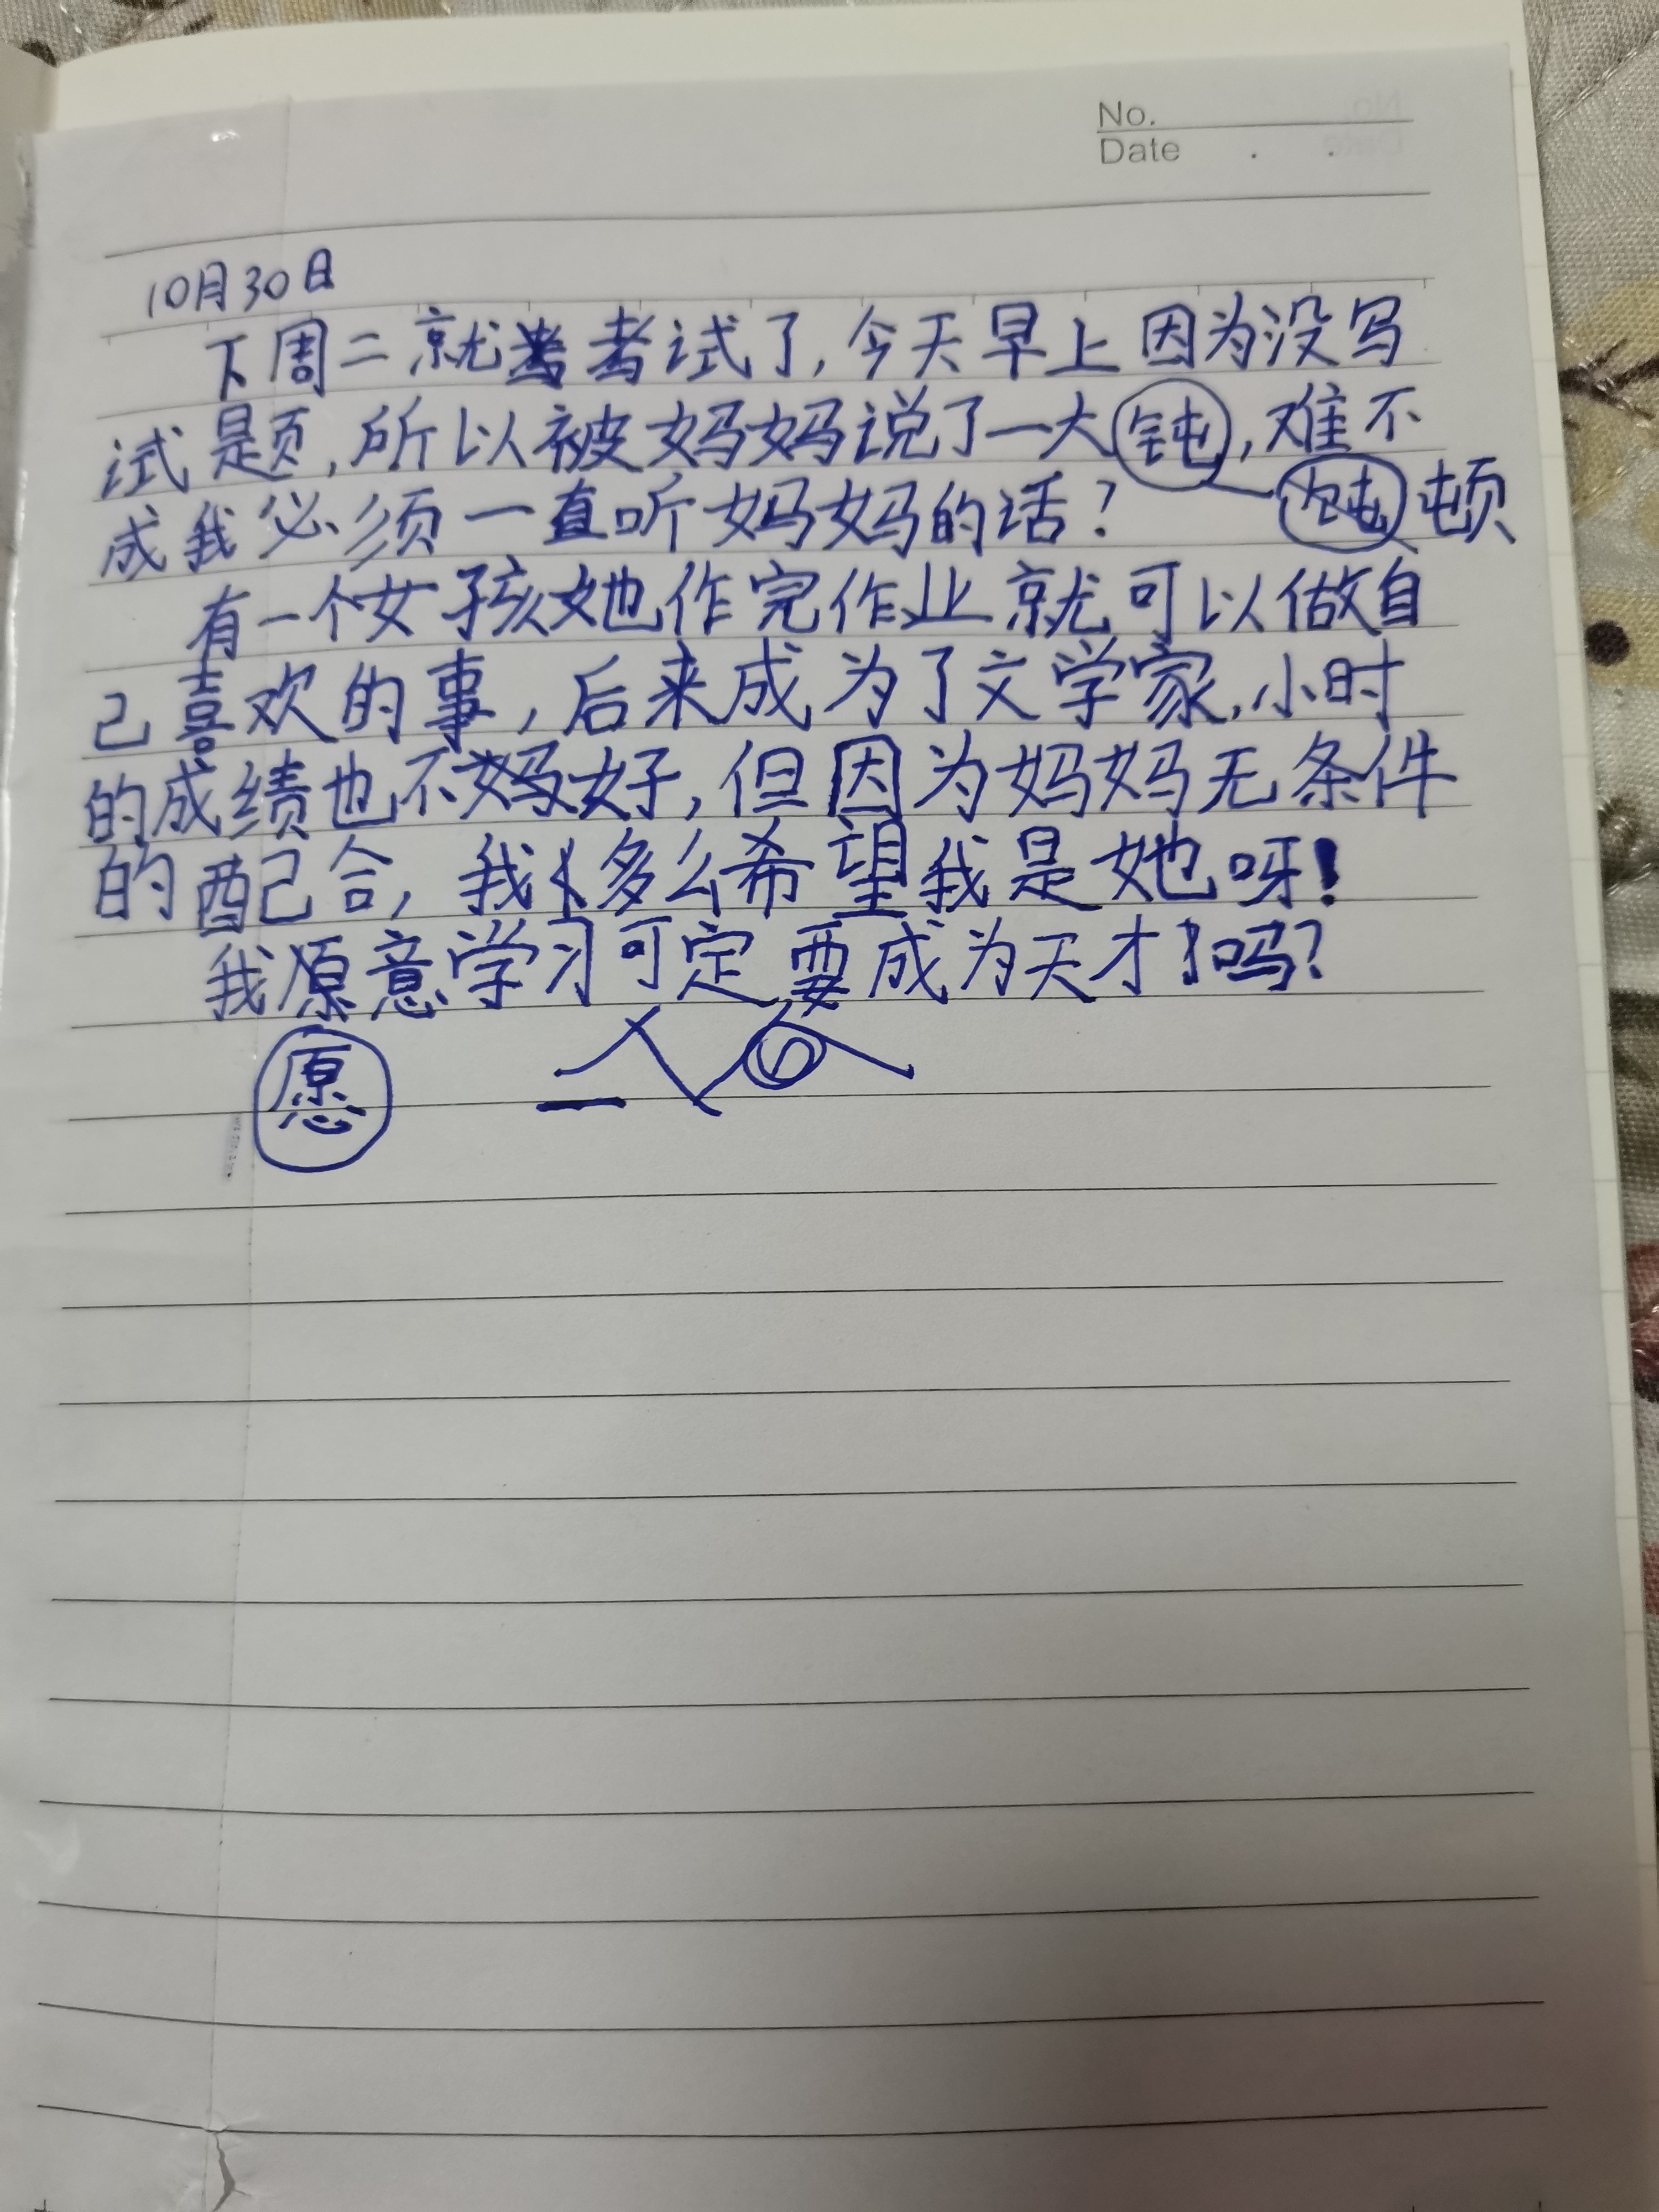 No.
Date
10月30日
下周二就考试了,今天早上因为没写
试题,所以被妈妈说了一大钝,难不
成我必须一直听妈妈的话? 饨 顿
有一个女孩她作完作业就可以做自
己喜欢的事,后来成为了文学家,小时
的成绩也不好,但因为妈妈无条件
的配合,我多么希望我是她呀!
我原意学习可定要成为天才吗?
愿 一